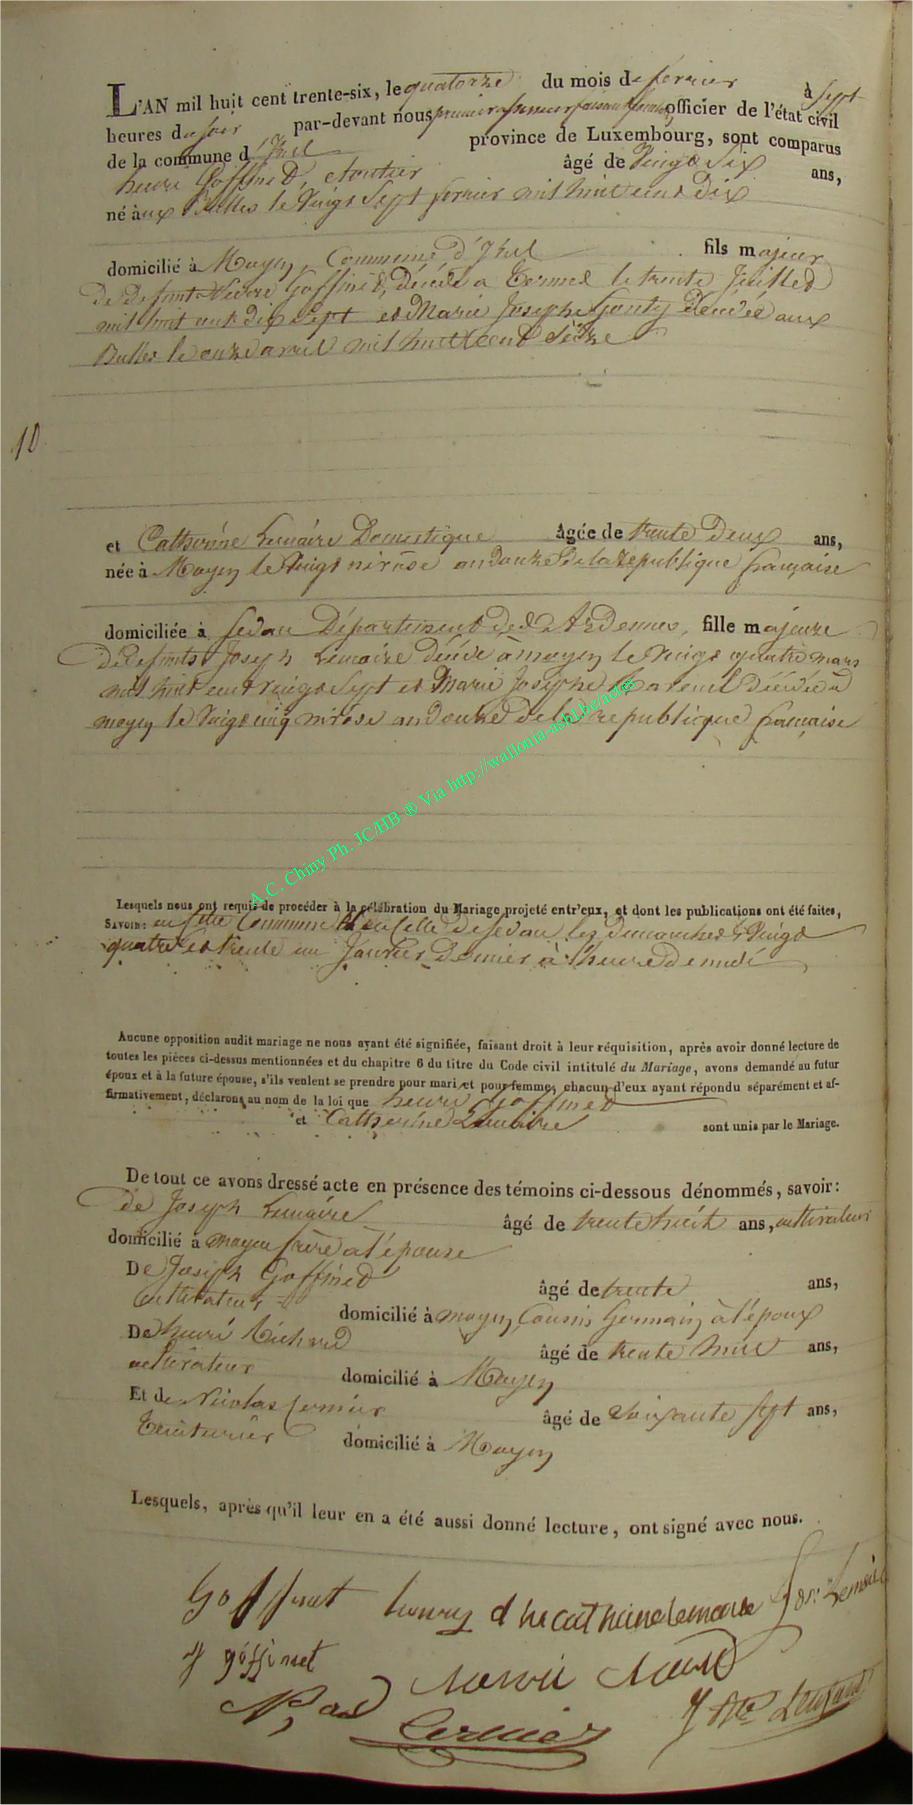 L'AN mil huit cent trente-six, le quatorze du mois de fevrier à Sept
heures du soir par-devant nous premier officier de l'état civil
de la commune d' province de Luxembourg, sont comparus
henri Goffinet, age de Vingt Six ans,
né aux Bulles le Vingt Sept fevrier mil huit cent dix
domicilié à Moyen, Commune d' fils majeur
De Defunt Pierre Goffinet, Décédé a termes le trente Juillet
mil huit cent dix Sept et Marie Josephe Décédée aux
Bulles le onze avril mil huit cent Seize
10
et Catherine Lemaire Domestique âgée de trente Deux ans,
née à Moyen le Vingt nivôse an douze De la République française
domiciliée à Sedan Département des Ardennes, fille majeure
De Defunts Joseph Lemaire Décédé à moyen le Vingt quatre mars
mil huit cent vingt Sept et Marie Josephe Décédée à
moyen le Vingt cinq nivôse an douze de la republique francaise
A.C. Chiny Ph. JC/HB ® Via http://wallonia-asbl.be/actes
Lesquels nous ont requis de procéder à la célébration du Mariage projeté entr'eux, et dont les publications ont été faites,
SAVOIR: en cette Commune et en celle de Sedan les dimanches Vingt
quatre et trente un Janvier Dernier à l'heure de midi
Aucune opposition audit mariage ne nous ayant été signifiée, faisant droit à leur réquisition, après avoir donné lecture de
toutes les pièces ci-dessus mentionnées et du chapitre 6 du titre du Code civil intitulé du Mariage, avons demandé au futur
époux et à la future épouse, s'ils veulent se prendre pour mari et pour femme, chacun d'eux ayant répondu séparément et af-
firmativement, déclarons au nom de la loi que henri Goffinet
et Catherine Lemaire sont unis par le Mariage.
De tout ce avons dressé acte en présence des témoins ci-dessous dénommés, savoir:
de Joseph Lemaire âgé de trente huit ans, cultivateur
domicilié à moyen frère à l'épouse
De Joseph Goffinet âgé de trente ans,
cultivateur domicilié à moyen Cousin Germain à l'époux
De henri Richard âgé de trente ans,
cultivateur domicilié à Moyen
Et de Nicolas âgé de Soixante Sept ans,
domicilié à Moyen
Lesquels, après qu'il leur en a été aussi donné lecture, ont signé avec nous.
Goffinet henry catherine lemaire Jos: Lemaire
J goffinet